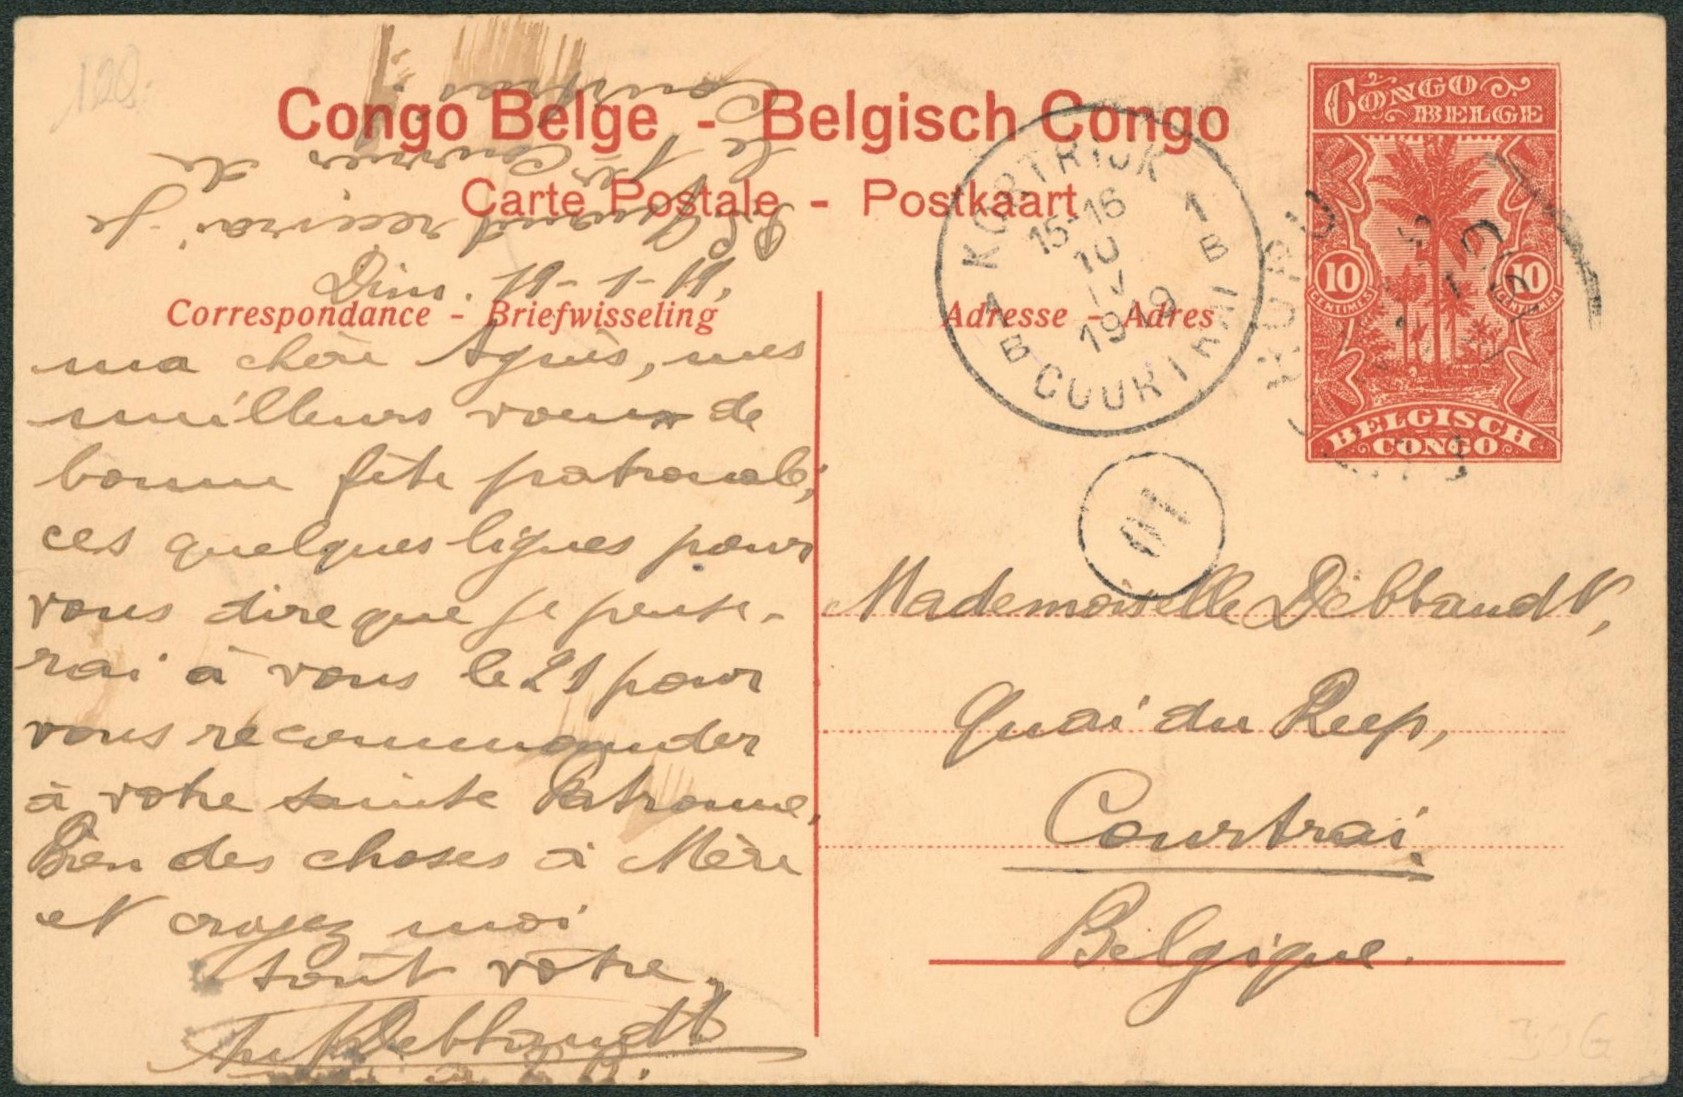 120
Congo Belge - Belgisch Congo
Carte Postale - Postkaart
CONGO
BELGE
10
CENTIMES
10
CENTIMES
BELGISCH
CONGO
KORTRIJK
15-16
10
IV
1919
1
B
1
B
COURTRAI
P.S. Quand recevrai-je
le 1er courrier de
Courtrai
Correspondance - Briefwisseling
Dim. 19-1-19,
ma chère Agnès, mes
meilleurs vœux de
bonne fête patronale;
ces quelques lignes pour
vous dire que je pense-
rai à vous le 21 pour
vous recommander
à votre sainte Patronne,
Bien des choses à Mère
et croyez moi
tout vôtre,
Debbaudt
Adresse - Adres
Mademoiselle Debbaudt,
Quai du Reep,
Courtrai.
Belgique.
306